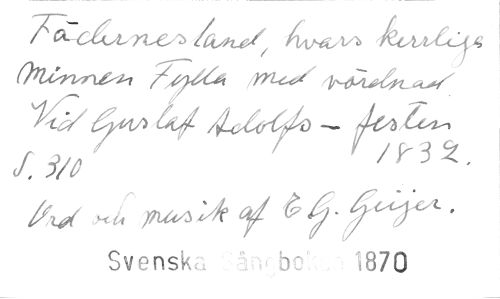 Fädernesland, hvars herrliga
minnen Fylla med vördnad
Vid Gustaf Adolfs-festen
1832.
S. 310
Ord och musik af E G. Geijer.
Svenska Sångboken 1870